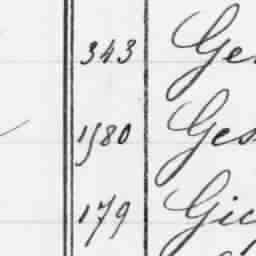 343 Ge
1580 Ges
179 Gi